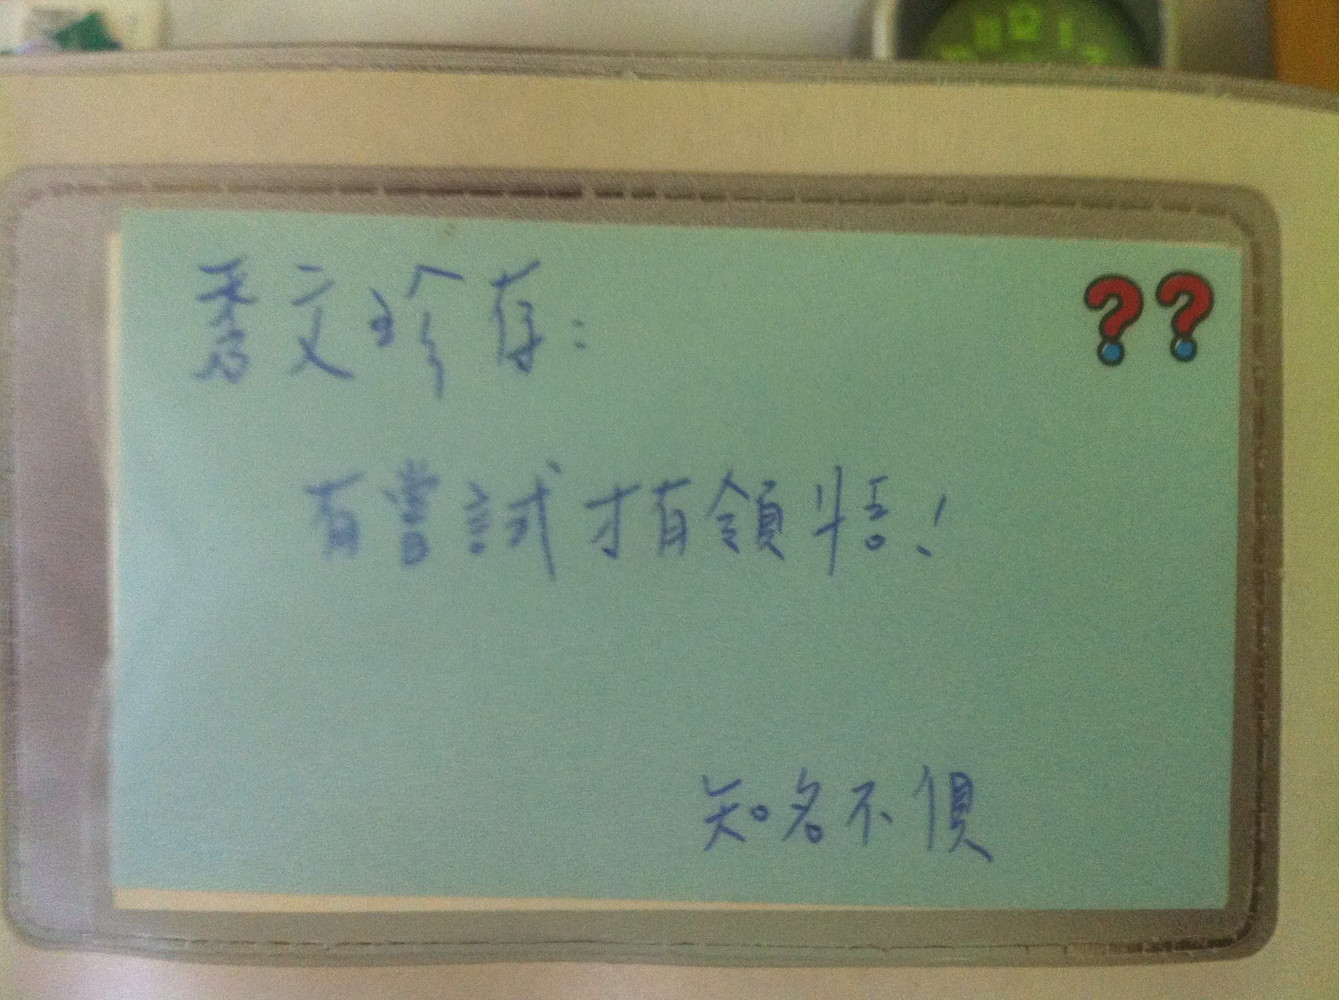 秀文珍存：
有嘗試才有領悟！
知名不俱